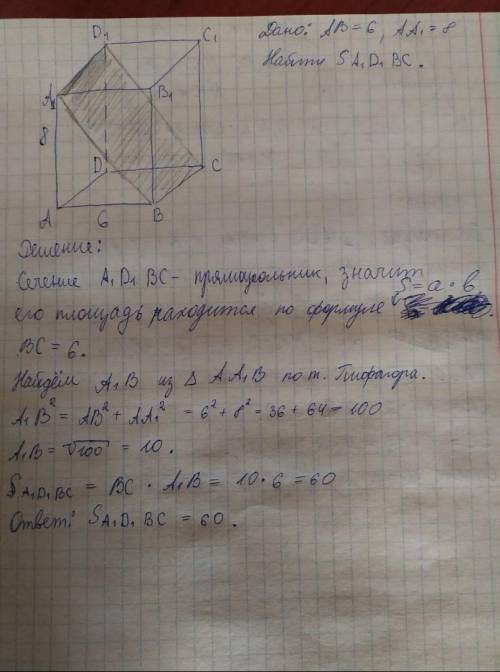 Дано: AB = 6, AA₁ = 8
Найти S A₁D₁BC.
D₁
C₁
A₁
B₁
8
D
C
A
6
B
Решение:
Сечение A₁D₁BC - прямоугольник, значит
его площадь находится по формуле S = a · b.
BC = 6.
Найдём A₁B из Δ AA₁B по т. Пифагора.
A₁B² = AB² + AA₁² = 6² + 8² = 36 + 64 = 100
A₁B = √100 = 10.
S A₁D₁BC = BC · A₁B = 10 · 6 = 60
Ответ: S A₁D₁BC = 60.